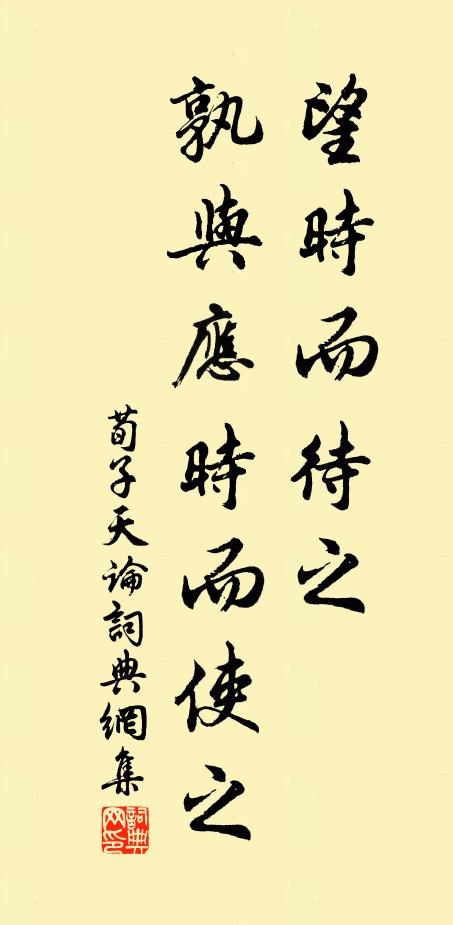 望時而待之
孰與應時而使之
荀子天論詞典網集
詞典网印